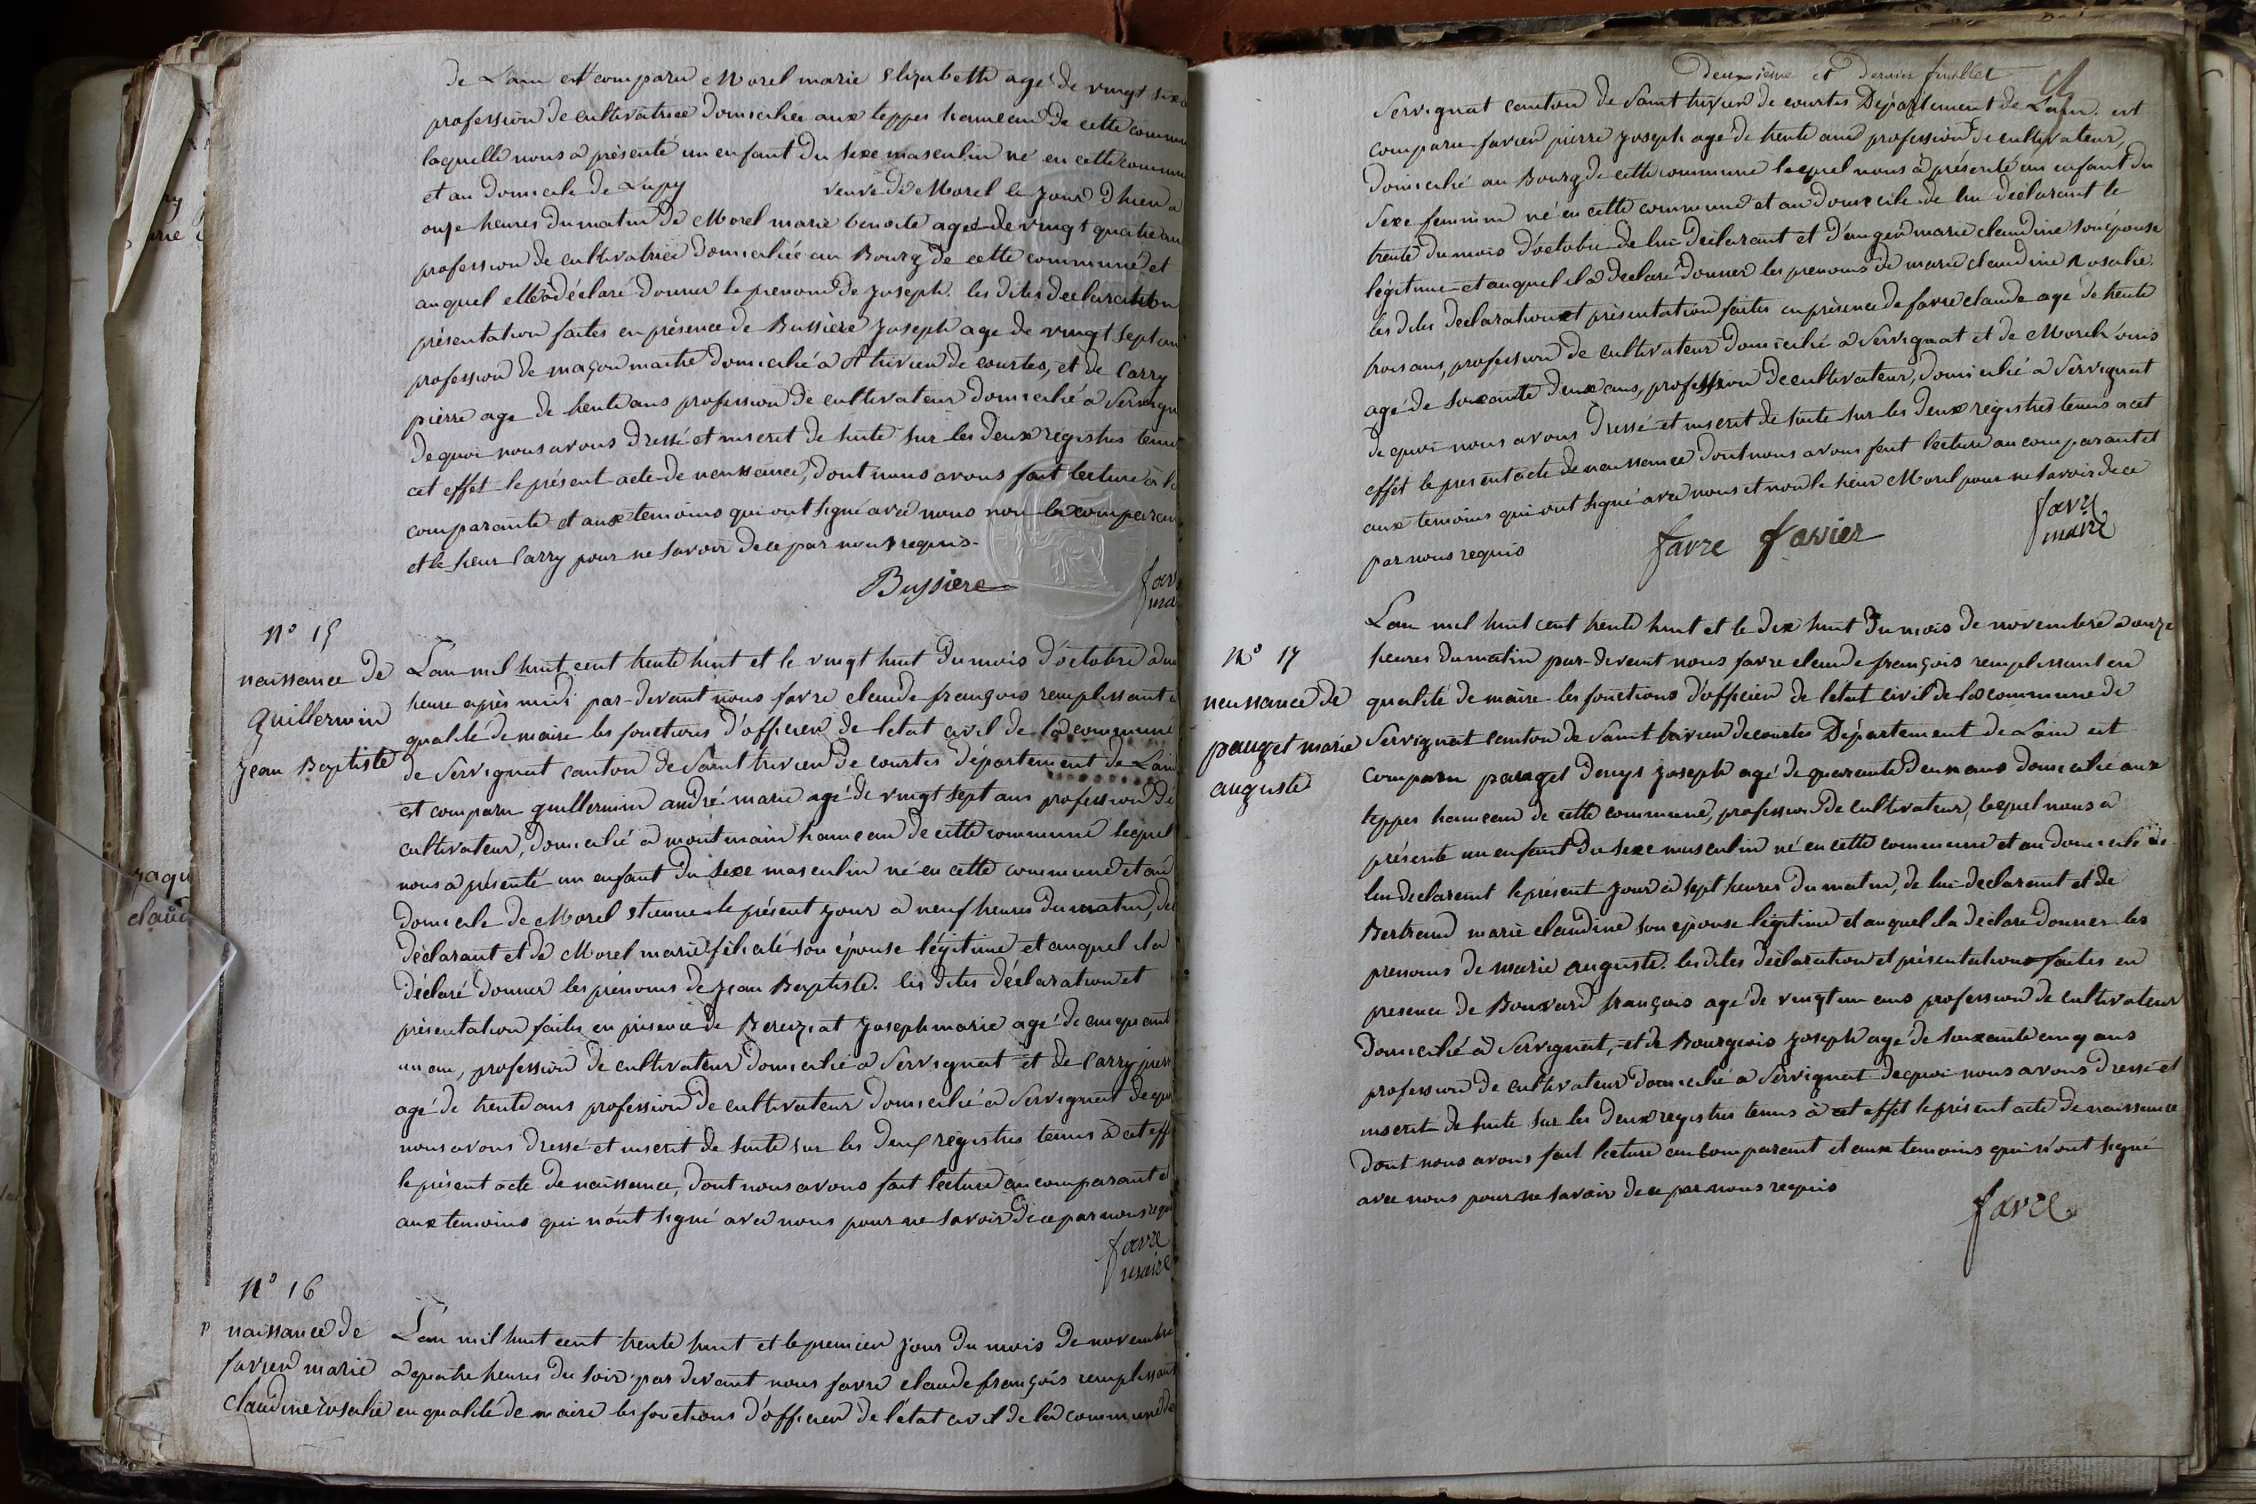 de Lain est comparu Morel marie Elizabeth agé de vingt six
profession de cultivatrice domiciliée aux teppes hameau de cette commun
laquelle nous a présenté un enfant du sexe masculin né en cette commun
et au domicile de Lupy veuve de Morel le jour d'hier a
onze heures du matin de Morel marie benoite agée de vingt quatre an
profession de cultivatrice domiciliée au Bourg de cette commune et
auquel elle a déclaré donner le prenom de Joseph. les dites declaration
présentation faites en présence de Bussière Joseph age de vingt sept an
profession de maçon maitre domicilié à St trivier de courtes, et de Carry
pierre age de trente ans profession de cultivateur domicilié a Servign
de quoi nous avons dressé et inscrit de suite sur les deux registres tenu
cet effet le présent acte de naissance, dont nous avons fait lecture à la
comparante et aux temoins qui ont signé avec nous non la comparan
et le sieur Carry pour ne savoir de ce par nous requis.
Bussiere
fav
ma
N° 15
naissance de
guillermin
Jean Baptiste
L'an mil huit cent trente huit et le vingt huit du mois d'octobre a un
heure après midi par-devant nous favre claude françois remplissant e
qualité de maire les fonctions d'officier de l'etat civil de la commune
de Servignat canton de Saint trivier de courtes département de Lain
est comparu guillermin andré marie agé de vingt sept ans profession de
cultivateur, domicilié a montmain hameau de cette commune lequel
nous a présenté un enfant du sexe masculin né en cette commune et au
domicile de Morel etienne le présent jour a neuf heures du matin, de
déclarant et de Morel marie félicité son épouse légitime et auquel il a
déclaré donner les prénoms de Jean Baptiste. les dites déclaration et
présentation faites en présence de Bereiziat Joseph marie agé de cinquante
un an, profession de cultivateur domicilié a Servignat et de Carry pierr
agé de trente ans profession de cultivateur domicilié a Servignat de quoi
nous avons dressé et inscrit de suite sur les deux régistres tenus à cet eff
le présent acte de naissance, dont nous avons fait lecture au comparant e
aux temoins qui n'ont signé avec nous pour ne savoir de ce par nous requi
favre
maire
N° 16
naissance de
favier marie
claudine rosalie
L'an mil huit cent trente huit et le premier jour du mois de novembre
a quatre heures du soir par devant nous favre claude françois remplissant
en qualité de maire les fonctions d'officier de l'état civil de la commune de
Deuxième et Dernier feuillet
Servignat canton de Saint trivier de courtes Département de Lain. est
comparu favier pierre Joseph agé de trente ans profession de cultivateur,
domicilié au Bourg de cette commune lequel nous a présenté un enfant du
Sexe feminin né en cette commune et au domicile de lui déclarant le
trente du mois d'octobre de lui declarant et d'auger marie claudine son épouse
légitime et auquel il a declaré donner les prenoms de marie claudine Rosalie.
les dites declaration et présentation faites en présence de favre claude agé de trente
trois ans, profession de cultivateur domicilié a Servignat et de Morel
agé de soixante deux ans, profession de cultivateur, domicilié a Servignat
de quoi nous avons dressé et inscrit de suite sur les deux régistres tenus a cet
effet le present acte de naissance dont nous avons fait lecture au comparant et
aux temoins qui ont signé avec nous et non le sieur Morel pour ne savoir de ce
par nous requis
favre favier
favre
maire
N° 17
naissance de
pauget marie
auguste
L'an mil huit cent trente huit et le dix huit du mois de novembre a onze
heures du matin par-devant nous favre claude françois remplissant en
qualité de maire les fonctions d'officier de l'état civil de la commune de
Servignat canton de Saint trivier de courtes Département de Lain est
comparu pauget denys Joseph agé de quarante deux ans domicilié aux
teppes hameau de cette commune, profession de cultivateur, lequel nous a
présenté un enfant du sexe masculin né en cette commune et au domicile de
lui declarant le présent jour à sept heures du matin, de lui declarant et de
Bertrand marie claudine son epouse légitime et auquel il a déclaré donner les
prenoms de marie auguste. les dites déclaration et présentation faites en
presence de Bouvard françois agé de vingt un ans profession de cultivateur
domicilié a Servignat, et de Bourgeois Joseph agé de soixante cinq ans
profession de cultivateur domicilié a Servignat de quoi nous avons dressé et
inscrit de suite sur les deux registres tenus à cet effet le présent acte de naissance
dont nous avons fait lecture au comparant et aux temoins qui n'ont signé
avec nous pour ne savoir de ce par nous requis
favre